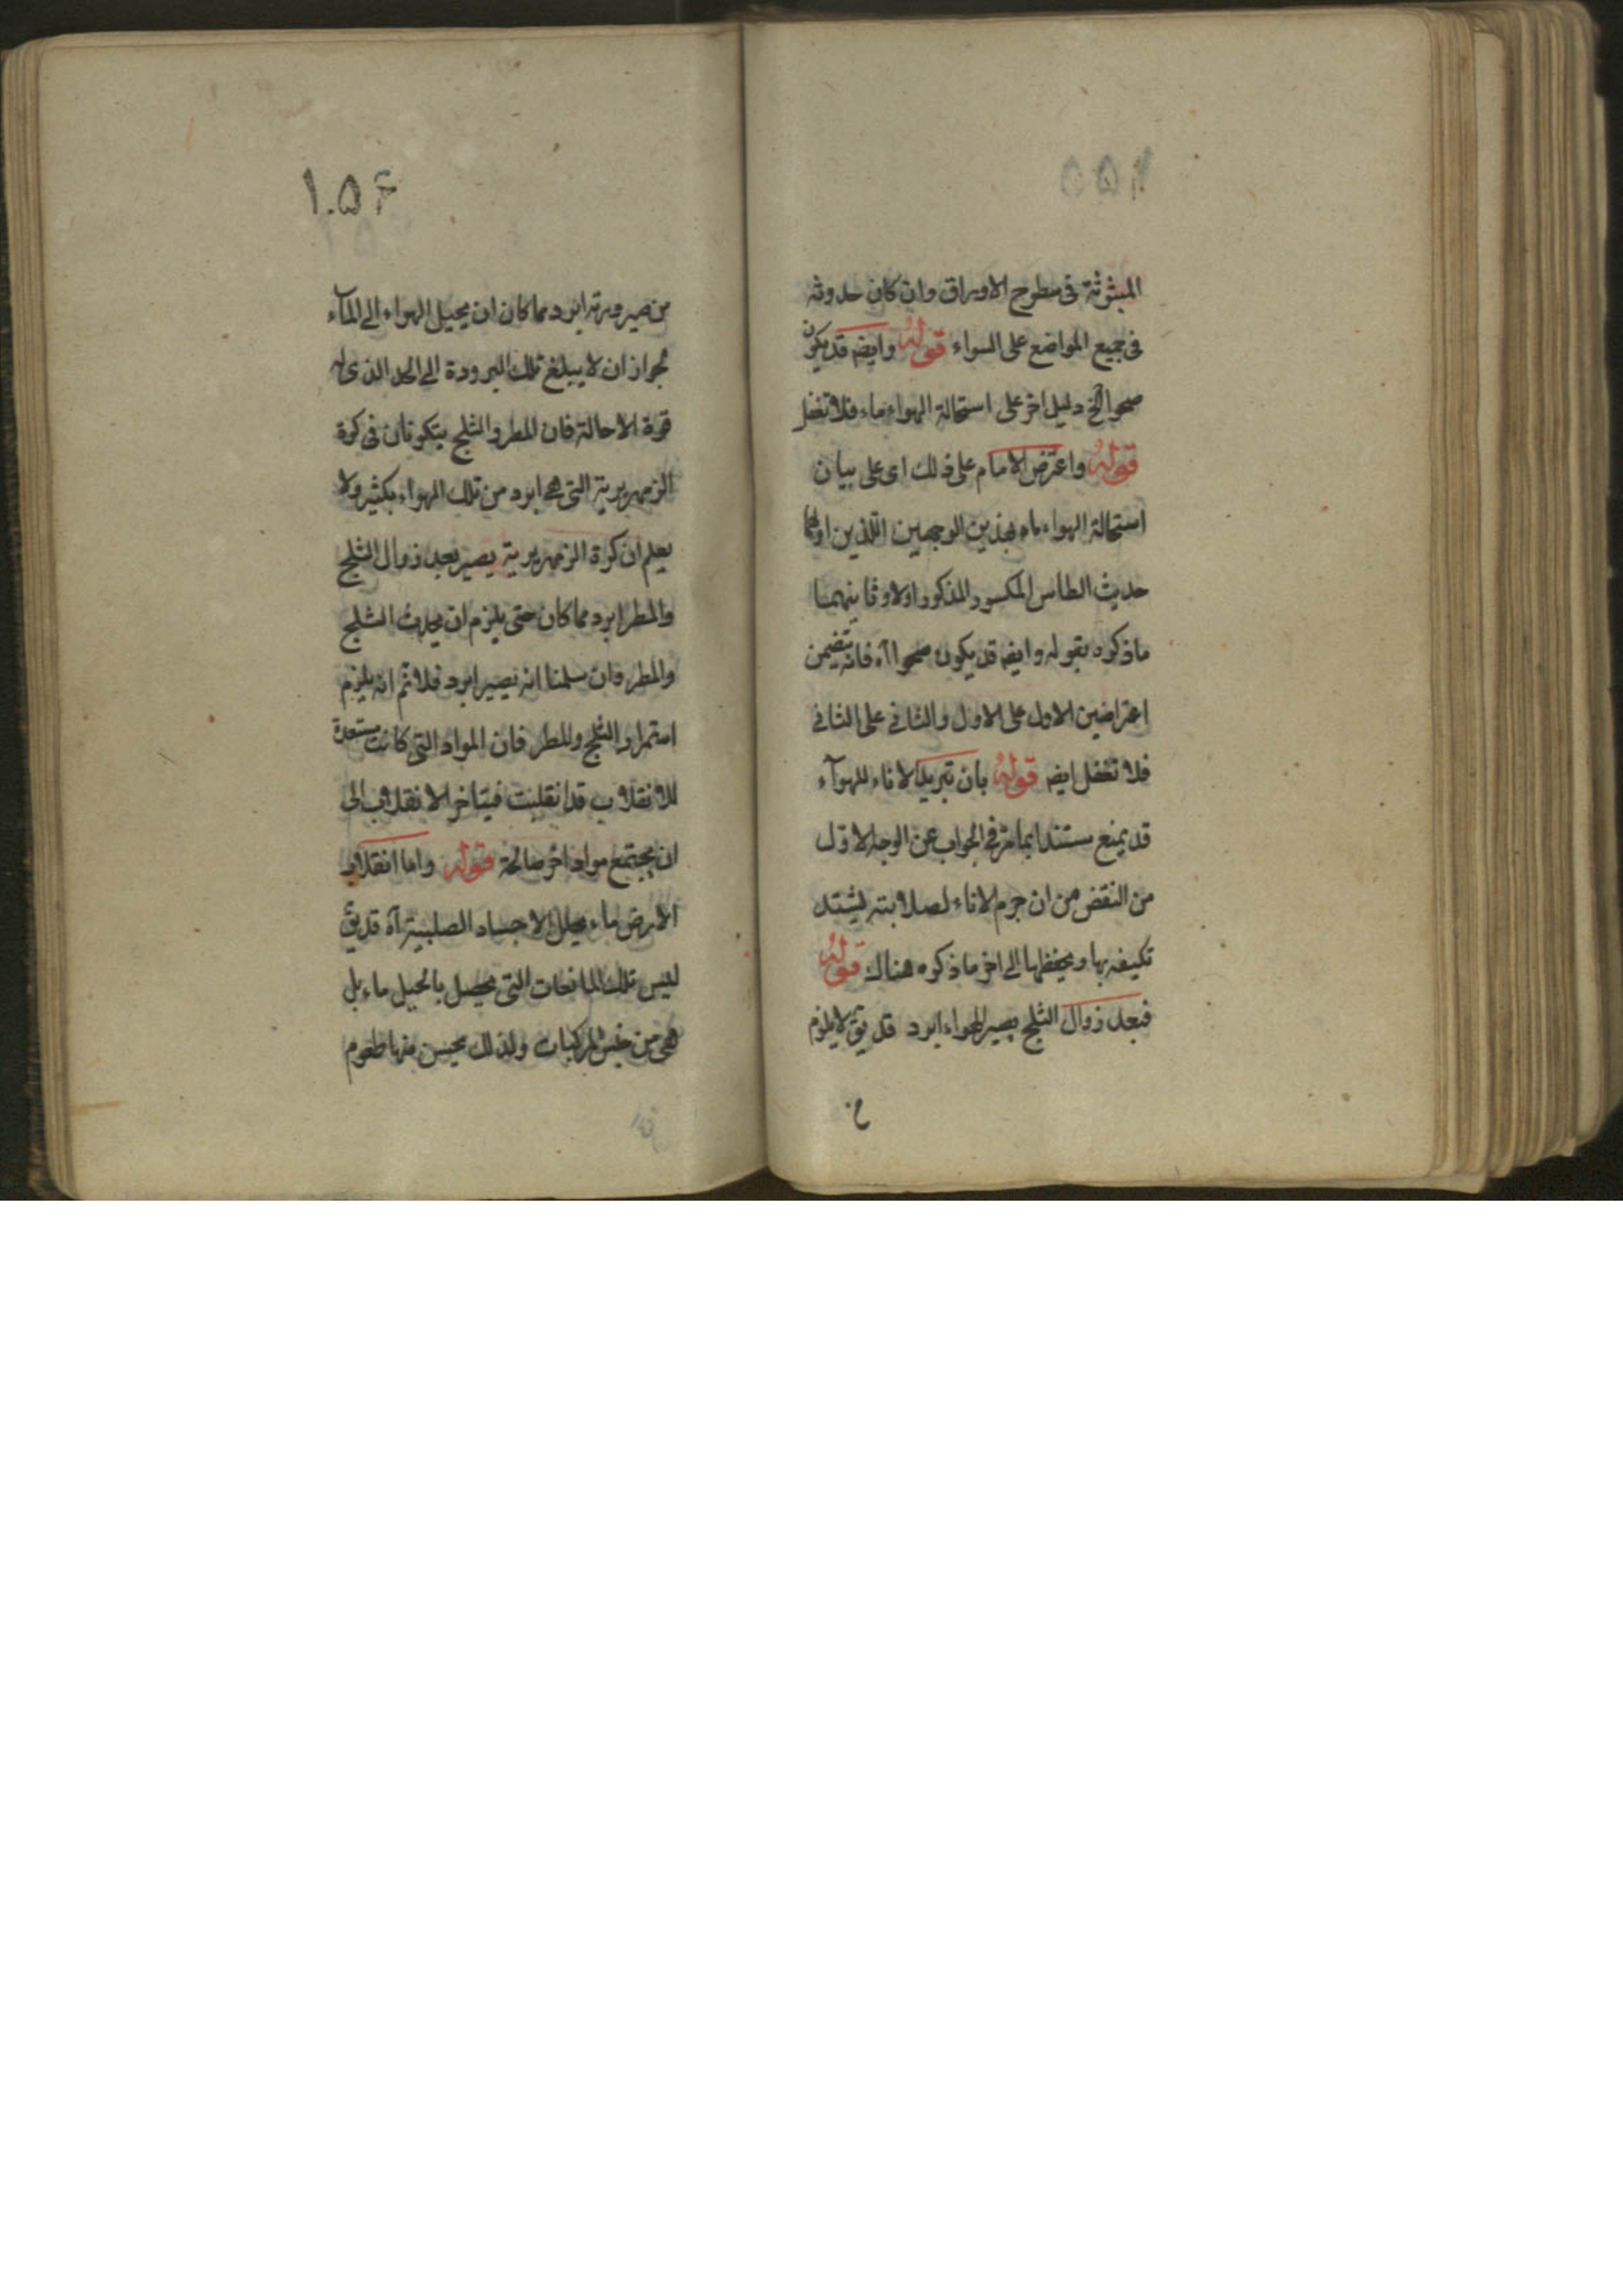 المبثوثة فى سطوح الاوراق وان كان حدوثه
فى جميع المواضع على السواء قوله وايضه قد يكون
صحوا الخ دليل اخر على استحالة الهواء ماء فلا تغفل
قوله واعترض الامام على ذلك اى على بيان
استحالة الهواء ماء بهذين الوجهين اللذين اولهما
حديث الطاس المكسور المذكور اولا وثانيهما
ماذكره بقوله وايضه قد يكون صحوا اآه فانه يتضمن
اعتراضين الاول على الاول والثانى على الثانى
فلا تغفل ايضه قوله بان تبريد الاناء للهوآء
قد يمنع مستندا بما مر فى الجواب عن الوجه الاول
من النقض من ان جرم الاناء لصلابته يشتد
تكيفه بها ويحفظها الى اخر ماذكره هناك قوله
فبعد زوال الثلج يصير الهواء ابرد قد يق لا يلزم
من
١٠٥۶
من صيرورته ابرد مما كان ان يحيل الهواء الى المآء
لجواز ان لا يبلغ تلك البرودة الى الحد الذى له
قوة الاحالة فان المطر والثلج يتكونان فى كرة
الزمهريرية التى هى ابرد من تلك الهواء بكثير ولا
يعلم ان كرة الزمهريرية يصير بعد زوال الثلج
والمطر ابرد مما كان حتى يلزم ان يحدث الثلج
والمطر وان سلمنا انه يصير ابرد فلا ثم انه يلزم
استمرار الثلج والمطر فان المواد التى كانت مستعدة
للانقلاب قد انقلبت فيتاخر الانقلاب الى
ان يجتمع مواد اخر صالحة قوله واما انقلاب
الارض ماء الاجساد الصلبية آه قد يق
ليس تلك المائعات التى يحصل بالحيل ماء بل
هى من جنس المركبات ولذلك يحسن منها طعوم